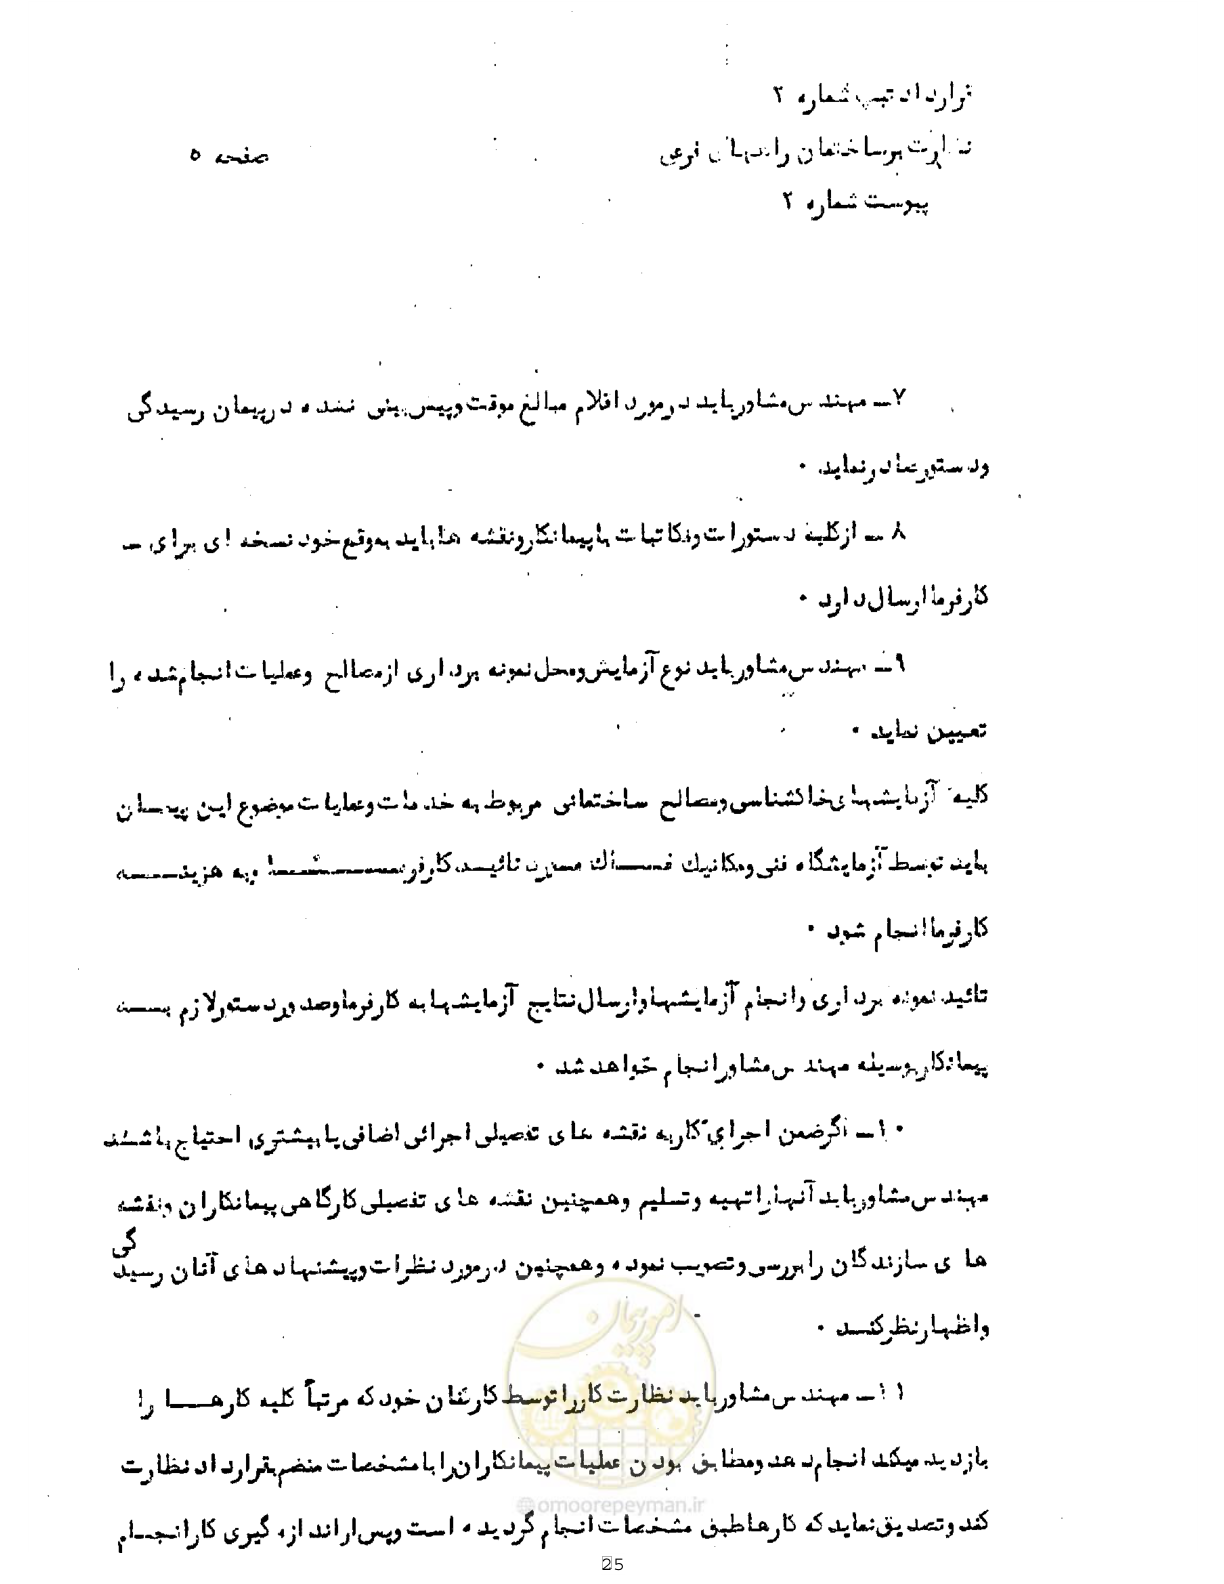 قرارداد تیپ شماره ۲
نظارت برساختمان راههای فرعی
صفحه ۵
پیوست شماره ۲
۷ـ مهندس مشاور باید درمورد اقلام مبالغ موقت وپیش بینی نشده درپیمان رسیدگی
ودستورصادرنماید .
۸ ـ ازکلیه دستورات ومکاتبات باپیمانکارونقشه هاباید به‌وقع خود نسخه ای برای ـ
کارفرما ارسال دارد .
۹ـ مهندس مشاورباید نوع آزمایش ومحل نمونه برداری ازمصالح وعملیات انجام شده را
تعیین نماید .
کلیه آزمایشهای خاکشناسی ومصالح ساختمانی مربوط به خدمات وعملیات موضوع این پیمـان
باید توسط آزمایشگاه فنی ومکانیک خـــاک مورد تائیـد کارفرمـــــا وبه هزینـــه
کارفرما انجام شود .
تائید نمونه برداری وانجام آزمایشها وارسال نتایج آزمایشها به کارفرما وصدوردستورلازم بـــه
پیمانکاربوسیله مهندس مشاور انجام خواهد شد .
۱۰ـ اگرضمن اجرای کاربه نقشه های تفصیلی اجرائی اضافی یا بیشتری احتیاج باشند
مهندس مشاورباید آنهاراتهیه وتسلیم وهمچنین نقشه های تفصیلی کارگاهی پیمانکاران ونقشه
های سازندگان را بررسی وتصویب نموده وهمچنین درمورد نظرات وپیشنهادهای آنان رسیدگی
واظهارنظرکنـد .
۱۱ـ مهندس مشاورباید نظارت کارراتوسط کارکنان خود که مرتباً کلیه کارهــا را
بازدید میکند انجام دهد ومطابق بودن عملیات پیمانکاران را با مشخصات منضم بقرارداد نظارت
کند وتصدیق نماید که کارها طبق مشخصات انجام گردیده است وپس ازاندازه گیری کارانجـام
امور پیمان
omoorepeyman.ir
25